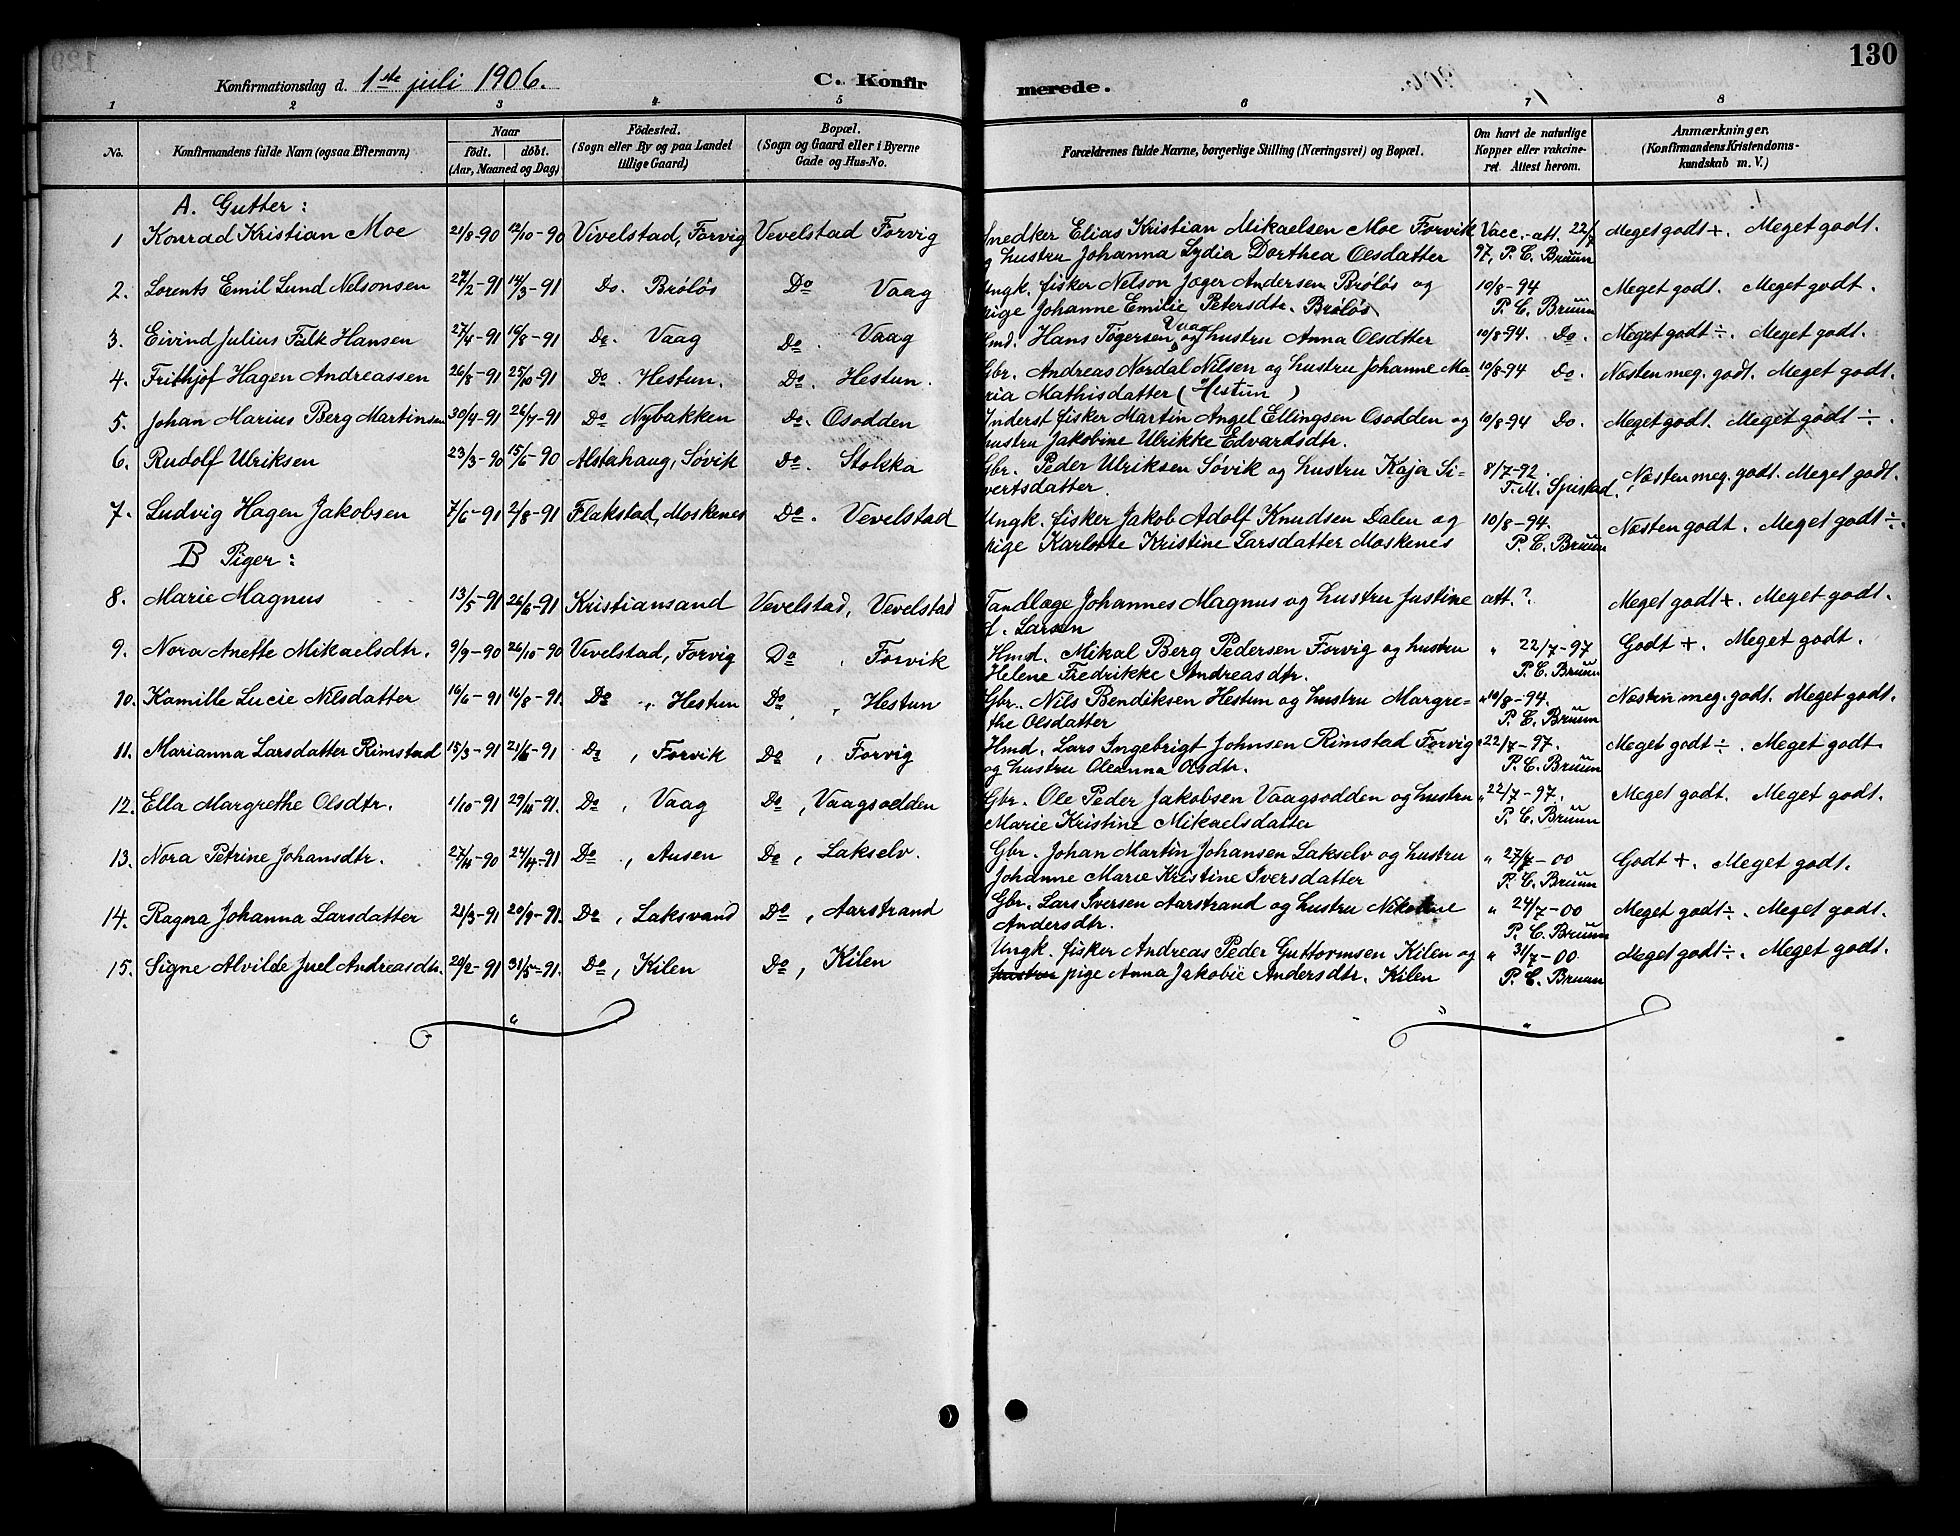 130
Konfirmationsdag d. 1ste juli 1906.
C. Konfirmerede.
1 2 3 4 5 6 7 8
No.
Konfirmandens fulde Navn (ogsaa Efternavn)
Naar
født. døbt.
(Aar, Maaned og Dag)
Fødested.
(Sogn eller By og paa Landet
tillige Gaard)
Bopæl.
(Sogn og Gaard eller i Byerne
Gade og Hus-No.
Forældrenes fulde Navne, borgerlige Stilling (Næringsvei) og Bopæl.
Om havt de naturlige
Kopper eller vakcine-
ret. Attest herom.
Anmærkninger.
(Konfirmandens Kristendoms-
kundskab m. V.)
A. Gutter:
1 Konrad Kristian Moe 21/8-90 12/10-90 Vivelstad, Forvig Vevelstad Forvig Snedker Elias Kristian Mikaelsen Moe Forvik Vacc.-att. 22/7 Meget godt+. Meget godt.
og hustru Johanna Lydia Dorthea Olsdatter 97, P. C. Bruun
2. Lorents Emil Lund Nelsonsen 24/2-91 14/3-91 Do. Brøløs Do Vaag Ungk. fisker Nelson Jæger Andersen Brøløs og 10/8-94 Meget godt. Meget godt.
pige Johanne Emilie Petersdtr. Brøløs P. C. Bruun
3. Eivind Julius Falk Hansen 27/4-91 16/8-91 Do. Vaag Do. Vaag Hmd. Hans Tøgersen Vaag og hustru Anna Olsdtter 10/8-94 Do. Meget godt÷. Meget godt.
4. Frithjof Hagen Andreassen 26/8-91 25/10-91 Do. Hestun. Do. Hestun. Gbr. Andreas Nordal Nilsen og hustru Johanne Ma- 10/8-94 Do. Næsten meg. godt. Meget godt.
ria Mathisdatter (Hestun)
5. Johan Marius Berg Martinsen 30/4-91 26/7-91 Do Nybakken Do. Osodden Inderst fisker Martin Angel Ellingsen Osodden og 10/8-94 Do. Meget godt. Meget godt÷.
hustru Jakobine Ulrikke Edvardsdtr.
6. Rudolf Ulriksen 23/3-90 15/6-90 Alstahaug, Søvik Do. Stokka Gbr. Peder Ulriksen Søvik og hustru Kaja Si- 8/7-92. Næsten meg. godt. Meget godt.
vertsdatter. T. M. Spistad.
7. Ludvig Hagen Jakobsen 7/6-91 2/8-91 Flakstad, Moskenes Do. Vevelstad Ungk. fisker Jakob Adolf Knudsen Dalen og 10/8-94. Næsten godt. Meget godt÷.
pige Karlotte Kristine Larsdatter Moskenes P. C. Bruun
B Piger:
8. Marie Magnus 13/5-91 26/6-91 Kristiansand Vevelstad, Vevelstad Tandlæge Johannes Magnus og hustru Justine att.? Meget godt+. Meget godt.
f. Larsen
9. Nora Anette Mikaelsdtr. 9/9-90 26/10-90 Vevelstad, Forvig Do , Forvik Hmd. Mikal Berg Pedersen Forvig og hustru " 22/7-97 Godt+. Meget godt.
Helene Fredrikke Andreasdtr. P. C. Bruun
10. Kamille Lucie Nilsdatter 16/6-91 16/8-91. Do , Hestun Do , Hestun Gbr. Nils Bendiksen Hestun og hustru Margre- " 10/8-94. Næsten meg. godt. Meget godt.
the Olsdatter P. C. Bruun
11. Marianna Larsdatter Rimstad 15/3-91 21/6-91 Do , Forvik Do , Forvig Hmd. Lars Ingebrigt Johnsen Rimstad Forvig " 22/7-97. Meget godt÷. Meget godt.
og hustru Oleanna Olsdtr. P. C. Bruun
12. Ella Margrethe Olsdtr. 1/10-91 29/11-91. Do , Vaag Do , Vaagsodden Gbr. Ole Peder Jakobsen Vaagsodden og hustru " 22/7-97. Meget godt. Meget godt.
Marie Kristine Mikaelsdatter P. C. Bruun
13. Nora Petrine Johansdtr. 27/11-90 24/4-91 Do , Ausen Do , Lakselv. Gbr. Johan Martin Johansen Lakselv og hustru " 27/7-00 Godt+. Meget godt.
Johanne Marie Kristine Iversdatter P. C. Bruun
14. Ragna Johanna Larsdatter 21/3-91 20/9-91. Do , Laksvand Do , Aarstrand Gbr. Lars Iversen Aarstrand og hustru Nikoline " 24/7-00 Meget godt÷. Meget godt.
Andersdtr. P. C. Bruun
15. Signe Alvilde Juel Andreasdtr. 20/2-91 31/5-91. Do , Kilen Do , Kilen Ungk. fisker Andreas Peder Guttormsen Kilen og " 31/7-00 Meget godt÷. Meget godt.
hustru pige Anna Jakobie Andersdtr. Kilen P. C. Bruun